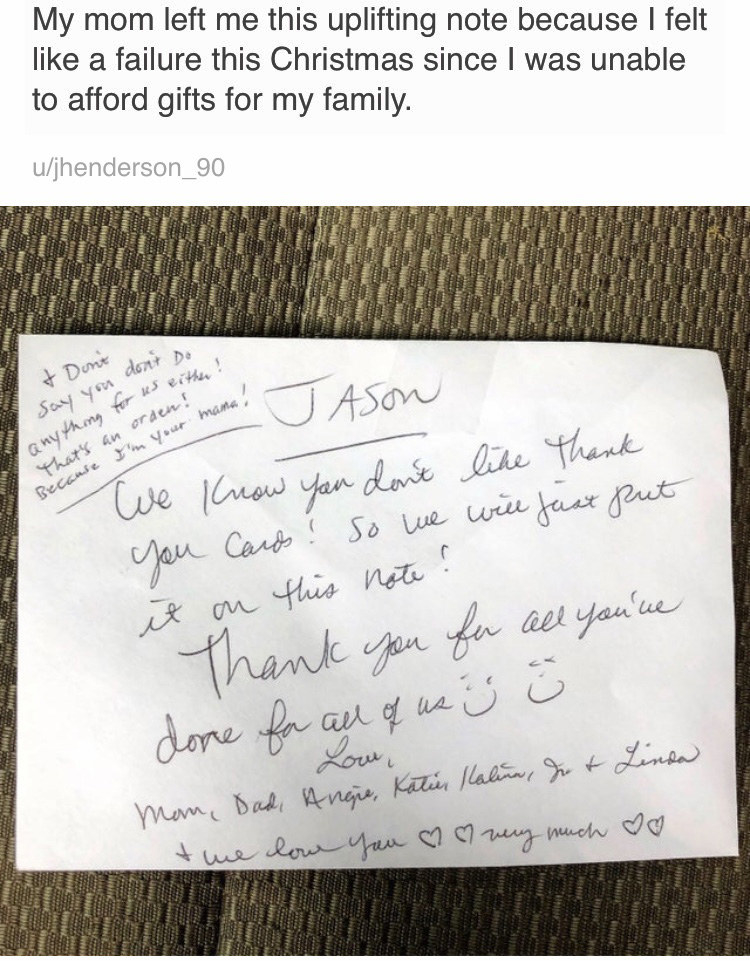 My mom left me this uplifting note because I felt
like a failure this Christmas since I was unable
to afford gifts for my family.
u/jhenderson_90
+ Don't
Say you don't Do
anything for us either!
that's an order!
Because I'm your mama!
JASON
We Know you don't like Thank
you Cards! So we will just put
it on this note!
Thank you for all you've
done for all of us
Love,
Mom, Dad, Angie, Katie, Jr + Linda
+ we love you ♡ ♡ very much ♡♡